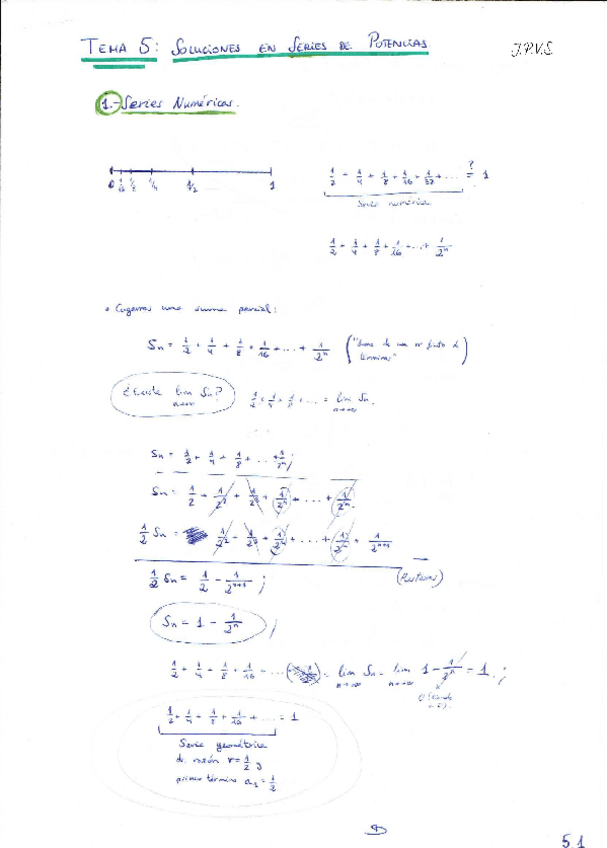 TEMA 5: SOLUCIONES EN SERIES DE POTENCIAS
J.P.V.S.
1.- Series Numéricas.
0 1/16 1/8 1/4 1/2 1
1/2 + 1/4 + 1/8 + 1/16 + 1/32 + ... =? 1
Serie numérica
1/2 + 1/4 + 1/8 + 1/16 + ... + 1/2^n
• Cogemos una suma parcial:
Sn = 1/2 + 1/4 + 1/8 + 1/16 + ... + 1/2^n ("Suma de un nº finito de términos")
¿Existe lim Sn? n→∞
1/2 + 1/4 + 1/8 + ... = lim Sn. n→∞
Sn = 1/2 + 1/4 + 1/8 + ... + 1/2^n;
Sn = 1/2 + 1/2^2 + 1/2^3 + 1/2^4 + ... + 1/2^n.
1/2 Sn = 1/2^2 + 1/2^3 + 1/2^4 + ... + 1/2^n + 1/2^(n+1)
(Restamos)
1/2 Sn = 1/2 - 1/2^(n+1);
Sn = 1 - 1/2^n;
1/2 + 1/4 + 1/8 + 1/16 + ... = lim Sn = lim 1 - 1/2^n = 1.;
n→∞ n→∞
1/2 + 1/4 + 1/8 + 1/16 + ... = 1
Serie geométrica
de razón r = 1/2 y
primer término a1 = 1/2
5.1